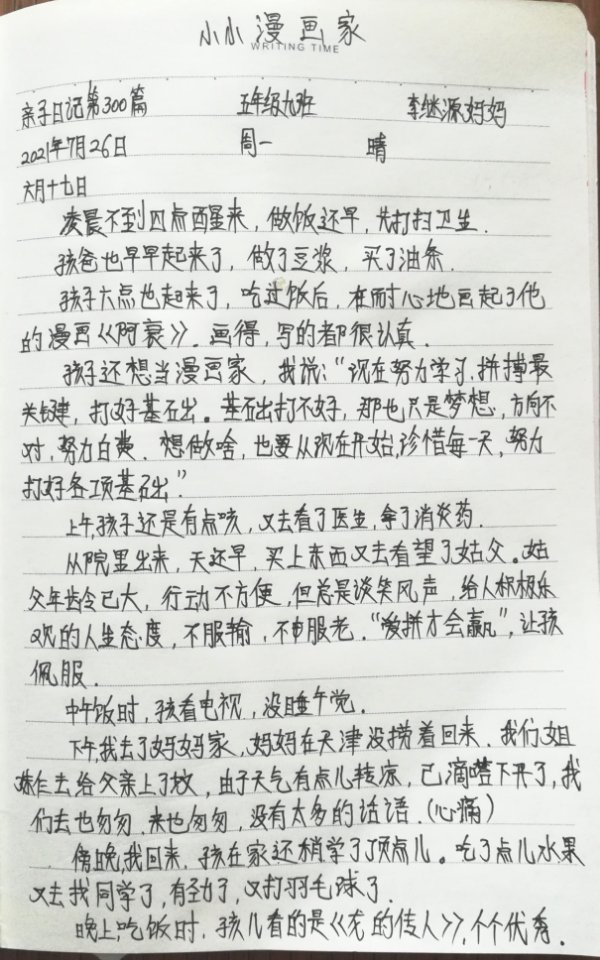 小小漫画家
WRITING TIME
亲子日记第300篇 五年级九班 李继源妈妈
2021年7月26日 周一 晴
六月十七日
凌晨不到四点醒来，做饭还早，先打扫卫生.
孩爸也早早起来了，做了豆浆，买了油条.
孩子六点也起来了，吃过饭后，在耐心地画起了他
的漫画《阿衰》. 画得，写的都很认真.
孩子还想当漫画家，我说：“现在努力学习.拼搏最
关键，打好基础。基础打不好，那也只是梦想，方向不
对，努力白费. 想做啥，也要从现在开始,珍惜每一天，努力
打好各项基础”.
上午,孩子还是有点咳，又去看了医生，拿了消炎药.
从院里出来，天还早，买上东西又去看望了姑父。姑
父年龄已大，行动不方便，但总是谈笑风声，给人积极乐
观的人生态度，不服输，不服老.“爱拼才会赢”，让孩
佩服.
中午饭时，孩看电视，没睡午觉.
下午,我去了妈妈家，妈妈在天津没捞着回来. 我们姐
妹仨去给父亲上了坟，由于天气有点儿转凉，已滴嗒下开了，我
们去也匆匆，来也匆匆，没有太多的话语.（心痛）
傍晚,我回来，孩在家还稍学了顶点儿。吃了点儿水果
又去找同学了，有劲了，又打羽毛球了.
晚上,吃饭时，孩儿看的是《龙的传人》，个个优秀.